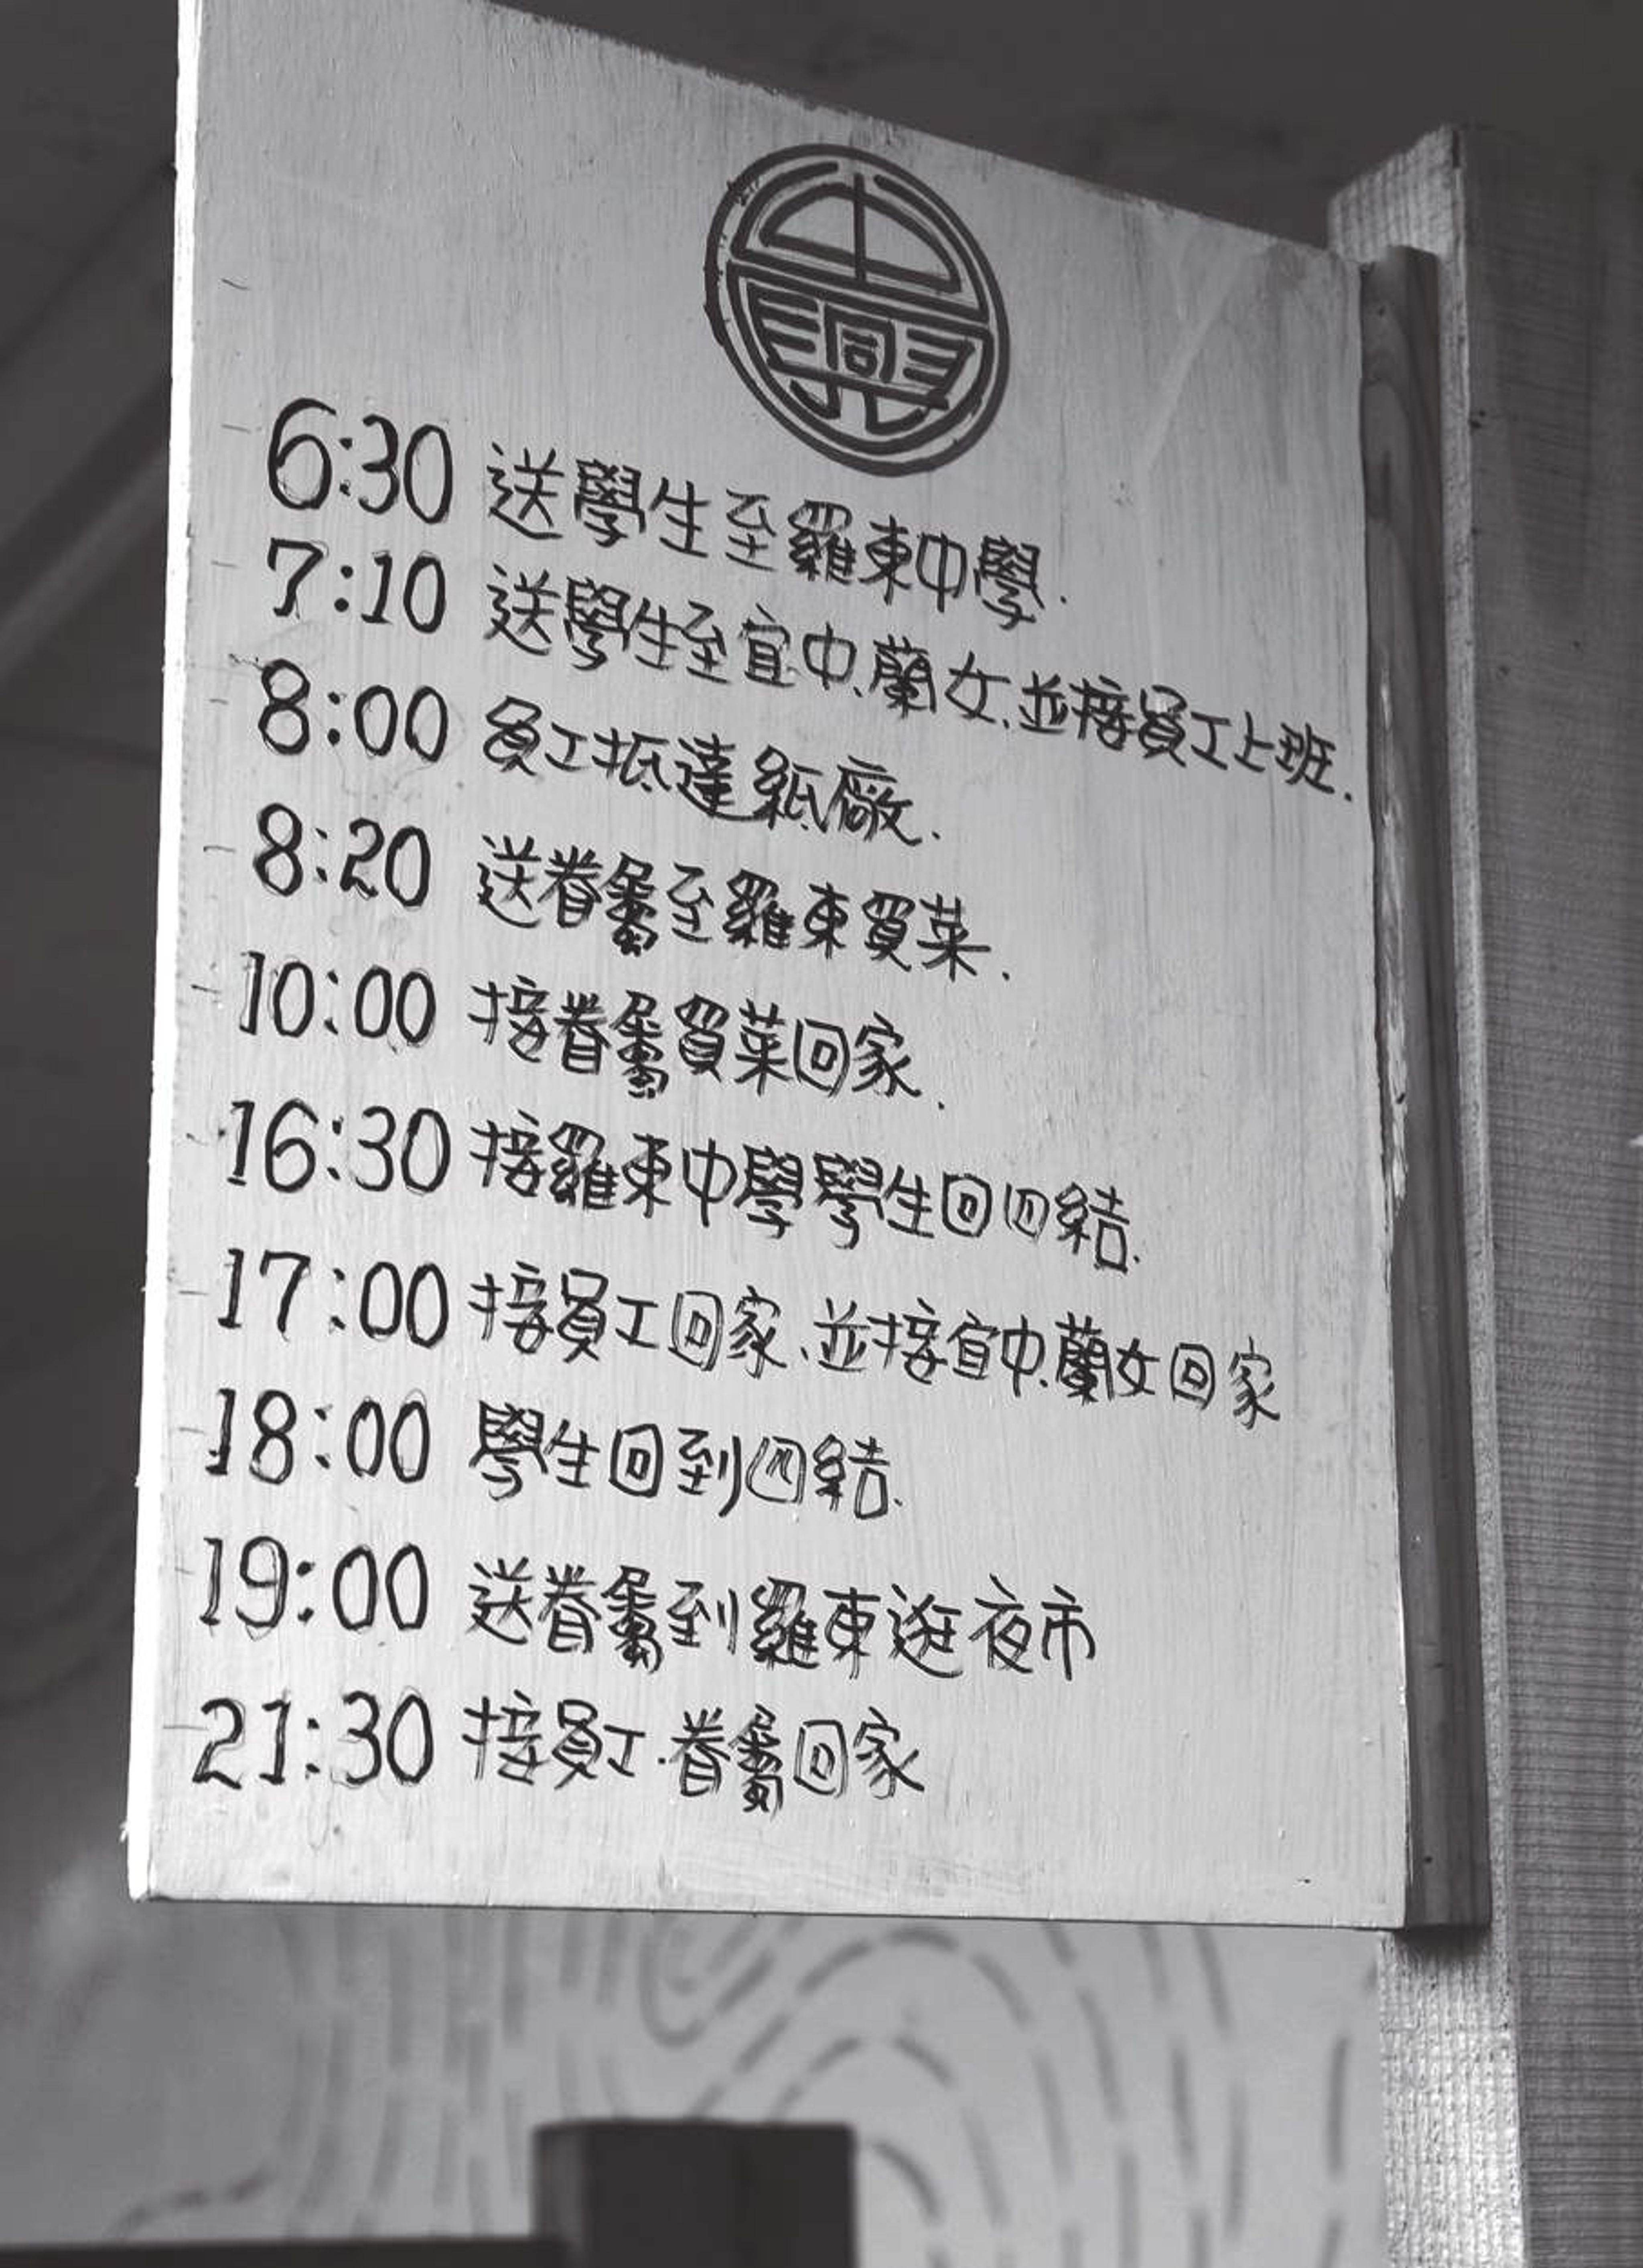 中興
6:30 送學生至羅東中學.
7:10 送學生至宜中、蘭女、並接員工上班.
8:00 員工抵達紙廠.
8:20 送眷屬至羅東買菜.
10:00 接眷屬買菜回家.
16:30 接羅東中學學生回四結.
17:00 接員工回家、並接宜中、蘭女回家
18:00 學生回到四結.
19:00 送眷屬到羅東逛夜市
21:30 接員工、眷屬回家